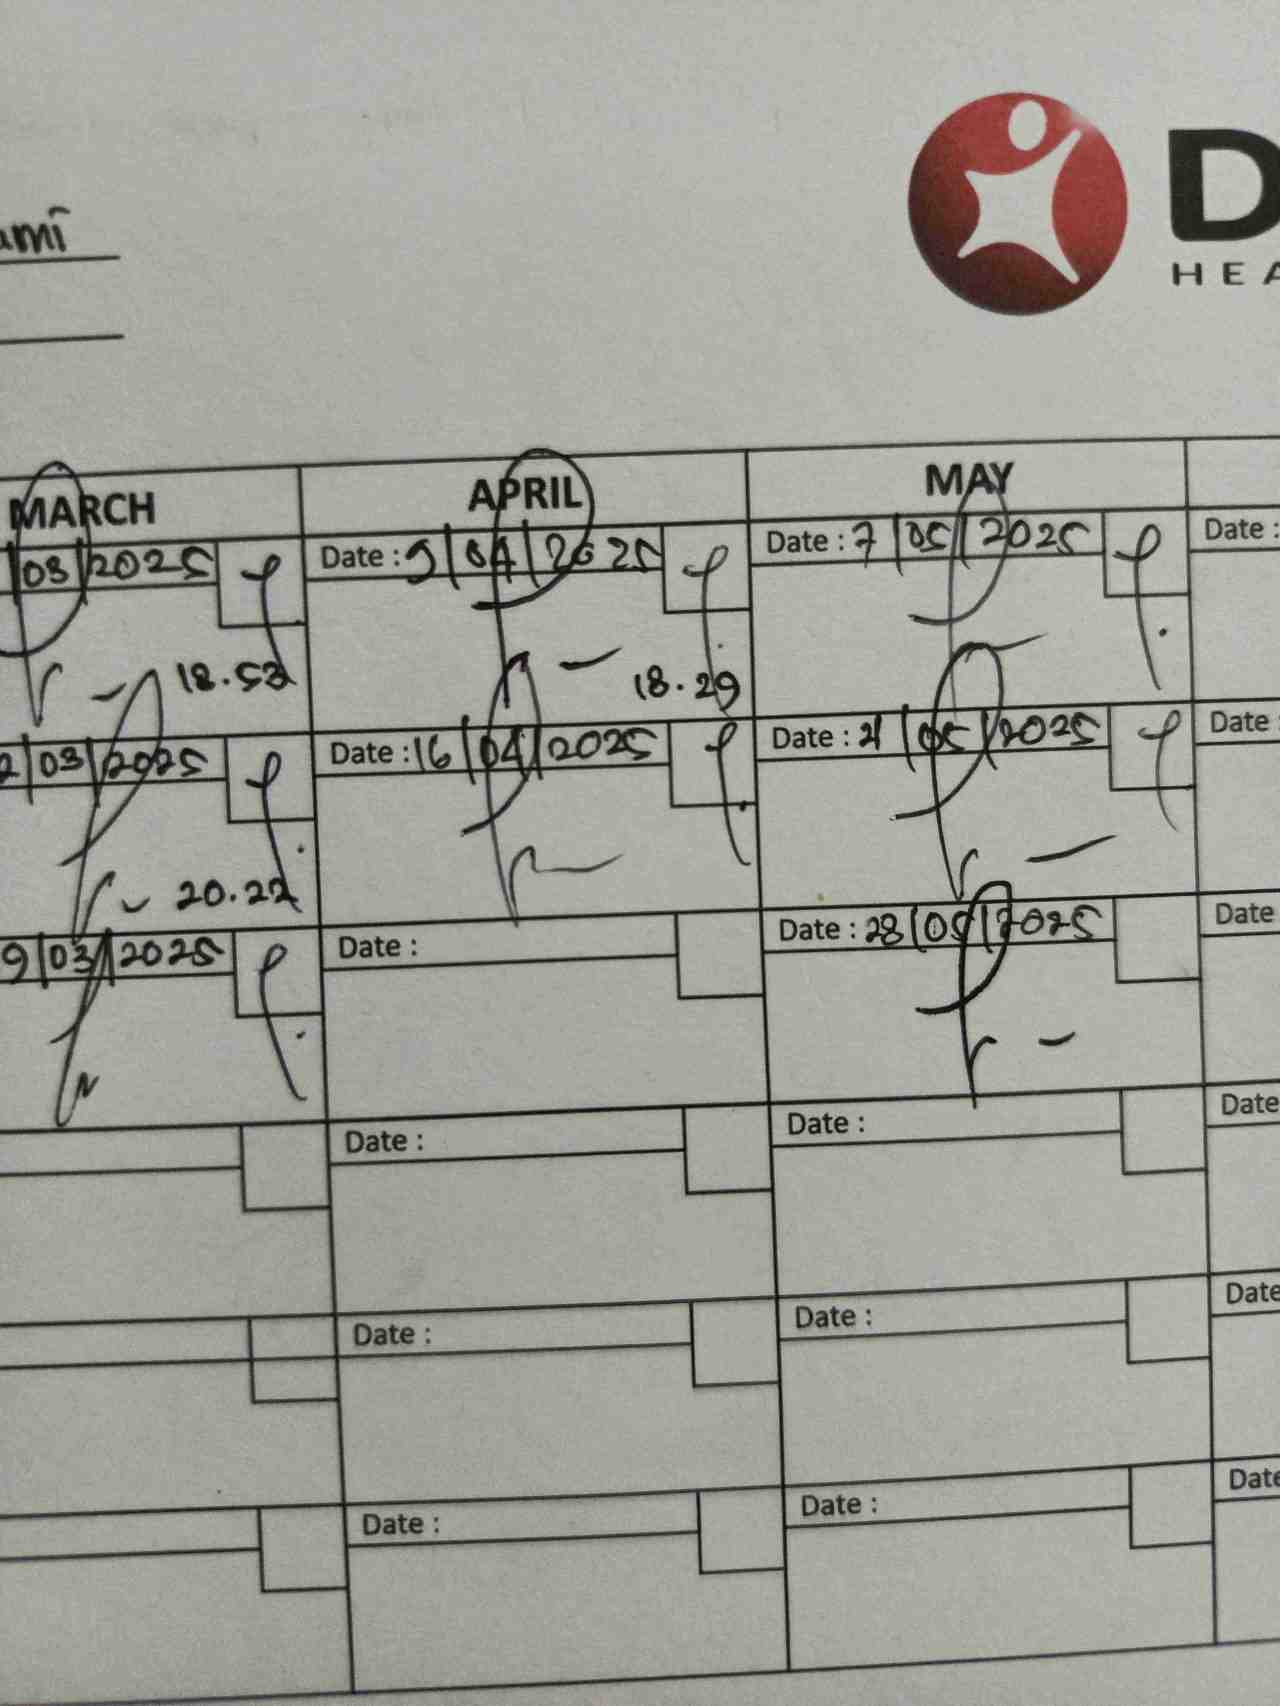 D
HEA
MARCH
APRIL
MAY
03/2025
Date : 9/04/2025
Date : 7/05/2025
Date :
18.53
18.29
2/03/2025
Date : 16/04/2025
Date : 21/05/2025
Date :
20.22
9/03/2025
Date :
Date : 28/05/2025
Date
Date :
Date :
Date
Date :
Date :
Date
Date :
Date :
Date